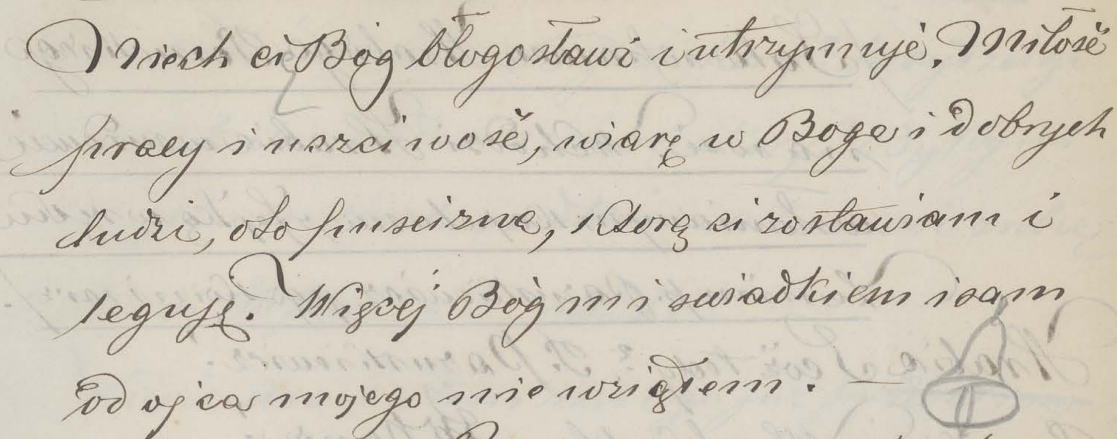 Niech ci Bóg błogosławi i utrzymuje. Miłość
pracy i uczciwość, wiarę w Boga i dobrych
ludzi, oto puścizna, którą ci zostawiam i
leguję. Więcej Bóg mi świadkiem i sam
od ojca mojego nie wziąłem. —